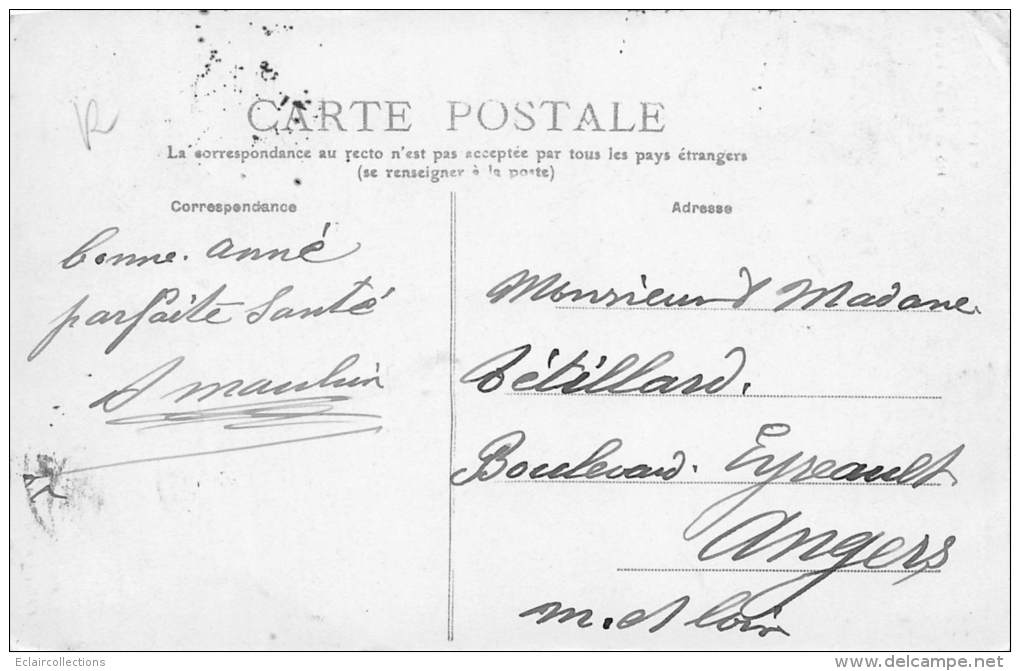 R
CARTE POSTALE
La correspondance au recto n'est pas acceptée par tous les pays étrangers
(se renseigner à la poste)
Correspondance
bonne. anné
parfaite Santé
Adresse
Monsieur & Madame
Tétillard.
Boulevard. Eyreault
Angers
m. et loir
Eclaircollections
www.delcampe.net